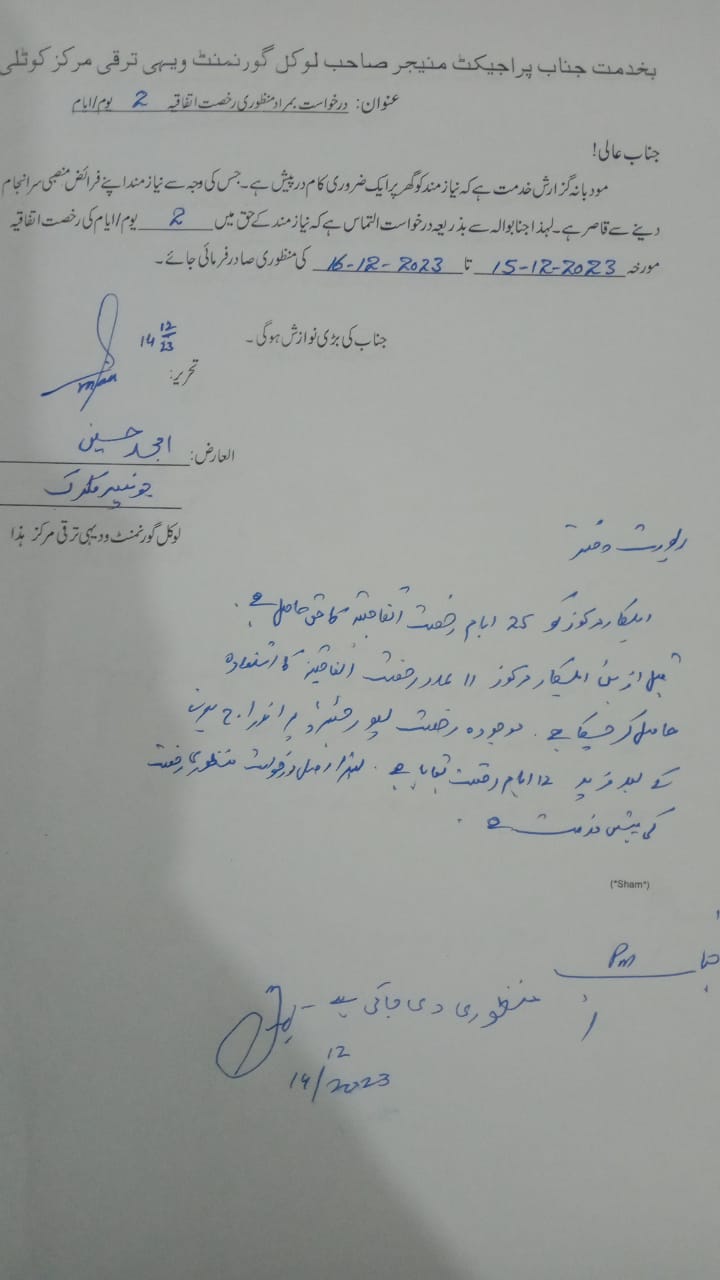 بخدمت جناب پراجیکٹ منیجر صاحب لوکل گورنمنٹ ویہی ترقی مرکز کوٹلی
عنوان: درخواست بمراد منظوری رخصت اتفاقیہ 2 یوم/ایام
جناب عالی!
مودبانہ گزارش خدمت ہے کہ نیاز مند کو گھر پر ایک ضروری کام درپیش ہے۔ جس کی وجہ سے نیاز مند اپنے فرائض منصبی سرانجام
دینے سے قاصر ہے۔ لہذا جنابوالہ سے بذریعہ درخواست التماس ہے کہ نیاز مند کے حق میں 2 یوم/ایام کی رخصت اتفاقیہ
مورخہ 15-12-2023 تا 16-12-2023 کی منظوری صادر فرمائی جائے۔
جناب کی بڑی نوازش ہوگی۔
تحریر: 14 12/23
العارض: امجد حسین
جونیئر کلرک
لوکل گورنمنٹ ودیہی ترقی مرکز ہذا
رپورٹ دفتر
اہلکار مذکور کو 25 ایام رخصت اتفاقیہ کا حق حاصل ہے۔
قبل ازیں اہلکار مذکور 11 عدد رخصت اتفاقیہ کا استفادہ
حاصل کر چکا ہے۔ موجودہ رخصت رجسٹر پر اندراج
کے بعد مزید 12 ایام رخصت بقایا ہے۔ لہذا اصل درخواست منظوری رخصت
کی پیش خدمت ہے۔
("Sham")
جناب PM
منظوری دی جاتی ہے۔
14/12/2023